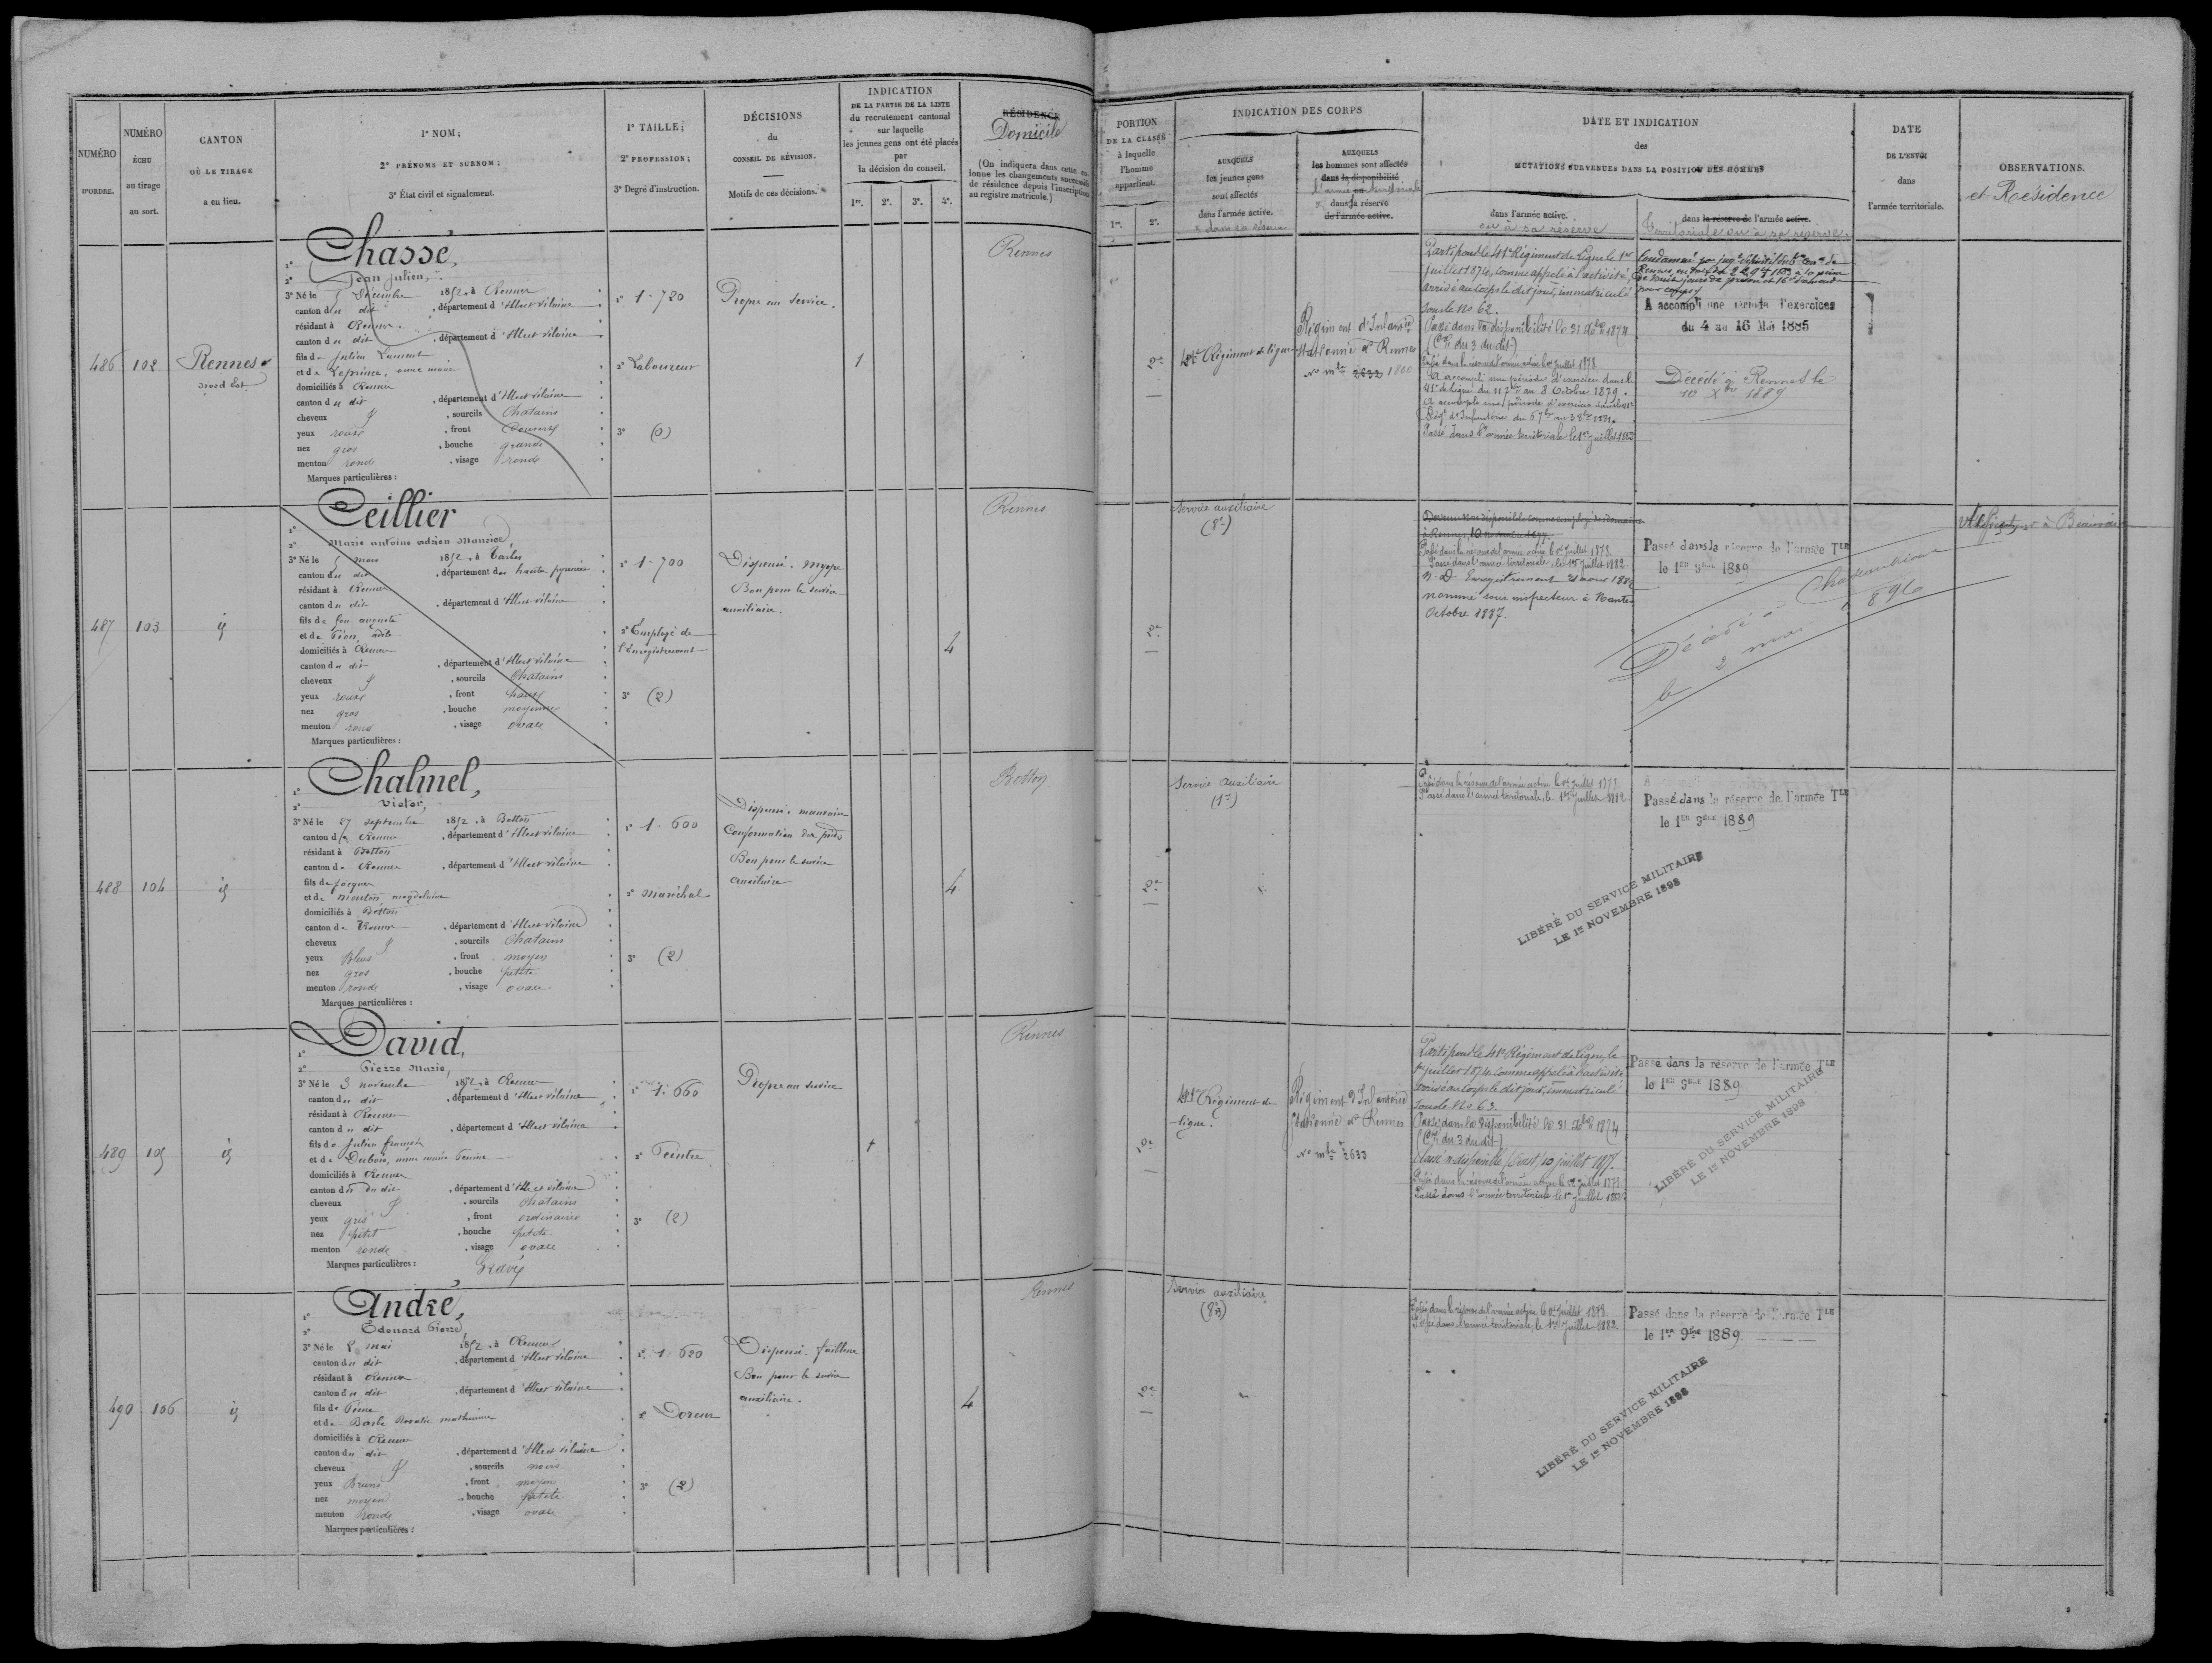 NUMÉRO
D'ORDRE.
NUMÉRO
ÉCHU
au tirage
au sort.
CANTON
OÙ LE TIRAGE
a eu lieu.
1° NOM;
2° PRÉNOMS ET SURNOM;
3° État civil et signalement.
1° TAILLE;
2° PROFESSION;
3° Degré d'instruction.
DÉCISIONS
du
CONSEIL DE RÉVISION.
Motifs de ces décisions.
INDICATION
DE LA PARTIE DE LA LISTE
du recrutement cantonal
sur laquelle
les jeunes gens ont été placés
par
la décision du conseil.
1re. 2e. 3e. 4e.
RÉSIDENCE
Domicile
(On indiquera dans cette co-
lonne les changements successifs
de résidence depuis l'inscription
au registre matricule.)
PORTION
DE LA CLASSE
à laquelle
l'homme
appartient.
1re. 2e.
INDICATION DES CORPS
AUXQUELS
les jeunes gens
sont affectés
dans l'armée active.
& dans sa réserve
AUXQUELS
les hommes sont affectés
dans la disponibilité
l'armée ou territoriale
& dans sa réserve
de l'armée active.
DATE ET INDICATION
des
MUTATIONS SURVENUES DANS LA POSITION DES HOMMES
dans l'armée active.
ou à sa réserve
dans la réserve de l'armée active.
territoriale ou à sa réserve.
DATE
DE L'ENVOI
dans
l'armée territoriale.
OBSERVATIONS.
et Résidence
486
102
Rennes
Nord Est
1° Chassé,
2° Jean Julien,
3° Né le 5 Décembre 1852, à Rennes
canton du dit, département d'Ille et vilaine
résidant à Rennes
canton du dit, département d'Ille et vilaine
fils de Julien Laurent
et de Leprince, anne marie
domiciliés à Rennes
canton du dit, département d'Ille et vilaine
cheveux &, sourcils Chatains
yeux roux, front Couvert
nez gros, bouche grande
menton rond, visage rond
Marques particulières :
1° 1-720
2° Laboureur
3° (0)
Propre au Service.
1
Rennes
2e
41e Régiment de ligne
Régiment d'Infanterie
Stationné à Rennes
No mle 2632 1800
Parti pour le 41e Régiment de Ligne le 1er
juillet 1874, comme appelé à l'activité,
arrivé au corps le dit jour, immatriculé
sous le No 62.
Passé dans la disponibilité le 31 Xbre 1874
(Cre du 3 du dit)
Passé dans la réserve de l'armée active le 1er Juillet 1878.
A accompli une période d'exercices dans le
41e de ligne du 11 7bre au 8 Octobre 1879.
A accompli une période d'exercices dans le 41e
Régt d'Infanterie du 6 7bre au 3 8bre 1881.
Passé dans l'armée territoriale le 1er Juillet 1882
A accompli une période d'exercices
du 4 au 16 Mai 1885
Décédé à Rennes le
10 Xbre 1889
487
103
id
1° Ceillier
2° Marie antoine adrien Maurice
3° Né le 5 mars 1852, à Tarbes
canton du dit, département des hautes pyrénées
résidant à Rennes
canton du dit, département d'Ille et vilaine
fils de feu auguste
et de Pion, adèle
domiciliés à Rennes
canton du dit, département d'Ille et vilaine
cheveux &, sourcils Chatains
yeux roux, front haut
nez gros, bouche moyenne
menton rond, visage ovale
Marques particulières :
1° 1-700
2° Employé de
l'Enregistrement
3° (2)
Dispensé. myope
Bon pour le service
auxiliaire.
4
Rennes
2e
Service auxiliaire
(8e)
Devenu non disponible comme employé des domaines
à Rennes, 10 novembre 1877.
Passé dans la réserve de l'armée active le 1er Juillet 1878.
Passé dans l'armée territoriale, le 1er Juillet 1882.
N. D. Enregistrement 21 aout 1882
nommé sous inspecteur à Nantes
Octobre 1887.
Passé dans la réserve de l'armée TLE
le 1ER 9BRE 1889
Décédé à Chateaubriant
le 2 mai 1896
488
104
id
1° Chalmel,
2° Victor,
3° Né le 27 septembre 1852, à Betton
canton de Rennes, département d'Ille et vilaine
résidant à Betton
canton de Rennes, département d'Ille et vilaine
fils de Jacques
et de mouton, magdelaine
domiciliés à Betton
canton de Rennes, département d'Ille et vilaine
cheveux &, sourcils Chatains
yeux bleus, front moyen
nez gros, bouche petite
menton rond, visage ovale
Marques particulières :
1° 1-600
2° Maréchal
3° (2)
Dispensé. mauvaise
Conformation des pieds
Bon pour le service
auxiliaire
4
Betton
2e
Service auxiliaire
(1e)
Passé dans la réserve de l'armée active le 1er Juillet 1878.
Passé dans l'armée territoriale, le 1er Juillet 1882
Passé dans la réserve de l'armée TLE
le 1ER 9BRE 1889
LIBÉRÉ DU SERVICE MILITAIRE
LE 1er NOVEMBRE 1898
489
105
id
1° David,
2° Pierre Marie,
3° Né le 3 novembre 1852, à Rennes
canton du dit, département d'Ille et vilaine
résidant à Rennes
canton du dit, département d'Ille et vilaine
fils de Julien françois
et de Dubois, anne marie Perrine
domiciliés à Rennes
canton du dit, département d'Ille et vilaine
cheveux &, sourcils Chatains
yeux gris, front ordinaire
nez petit, bouche petite
menton rond, visage ovale
Marques particulières : Gravé
1° 1-660
2° Peintre
3° (2)
Propre au service
1
Rennes
2e
41e Régiment de
ligne.
Régiment d'Infanterie
Stationné à Rennes
No mle 2633
Parti pour le 41e Régiment de Ligne, le
1er juillet 1874, comme appelé à l'activité
arrivé au corps le dit jour, immatriculé
sous le No 63.
Passé dans la disponibilité le 31 Xbre 1874
(Cre du 3 du dit)
Classé non disponible (Ouest) 10 juillet 1877.
Passé dans la réserve de l'armée active le 1er Juillet 1878.
Passé dans l'armée territoriale le 1er Juillet 1882
Passé dans la réserve de l'armée TLE
le 1ER 9BRE 1889
LIBÉRÉ DU SERVICE MILITAIRE
LE 1er NOVEMBRE 1898
490
106
id
1° André,
2° Edouard Pierre
3° Né le 2 mai 1852, à Rennes
canton du dit, département d'Ille et vilaine
résidant à Rennes
canton du dit, département d'Ille et vilaine
fils de Pierre
et de Rosalie mathurine
domiciliés à Rennes
canton du dit, département d'Ille et vilaine
cheveux &, sourcils noirs
yeux Bruns, front moyen
nez moyen, bouche petite
menton rond, visage ovale
Marques particulières :
1° 1-620
2° Doreur
3° (2)
Dispensé. faiblesse
Bon pour le service
auxiliaire.
4
Rennes
2e
Service auxiliaire
Passé dans la réserve de l'armée active le 1er Juillet 1878
Passé dans l'armée territoriale, le 1er Juillet 1882
Passé dans la réserve de l'armée TLE
le 1er 9bre 1889
LIBÉRÉ DU SERVICE MILITAIRE
LE 1er NOVEMBRE 1898